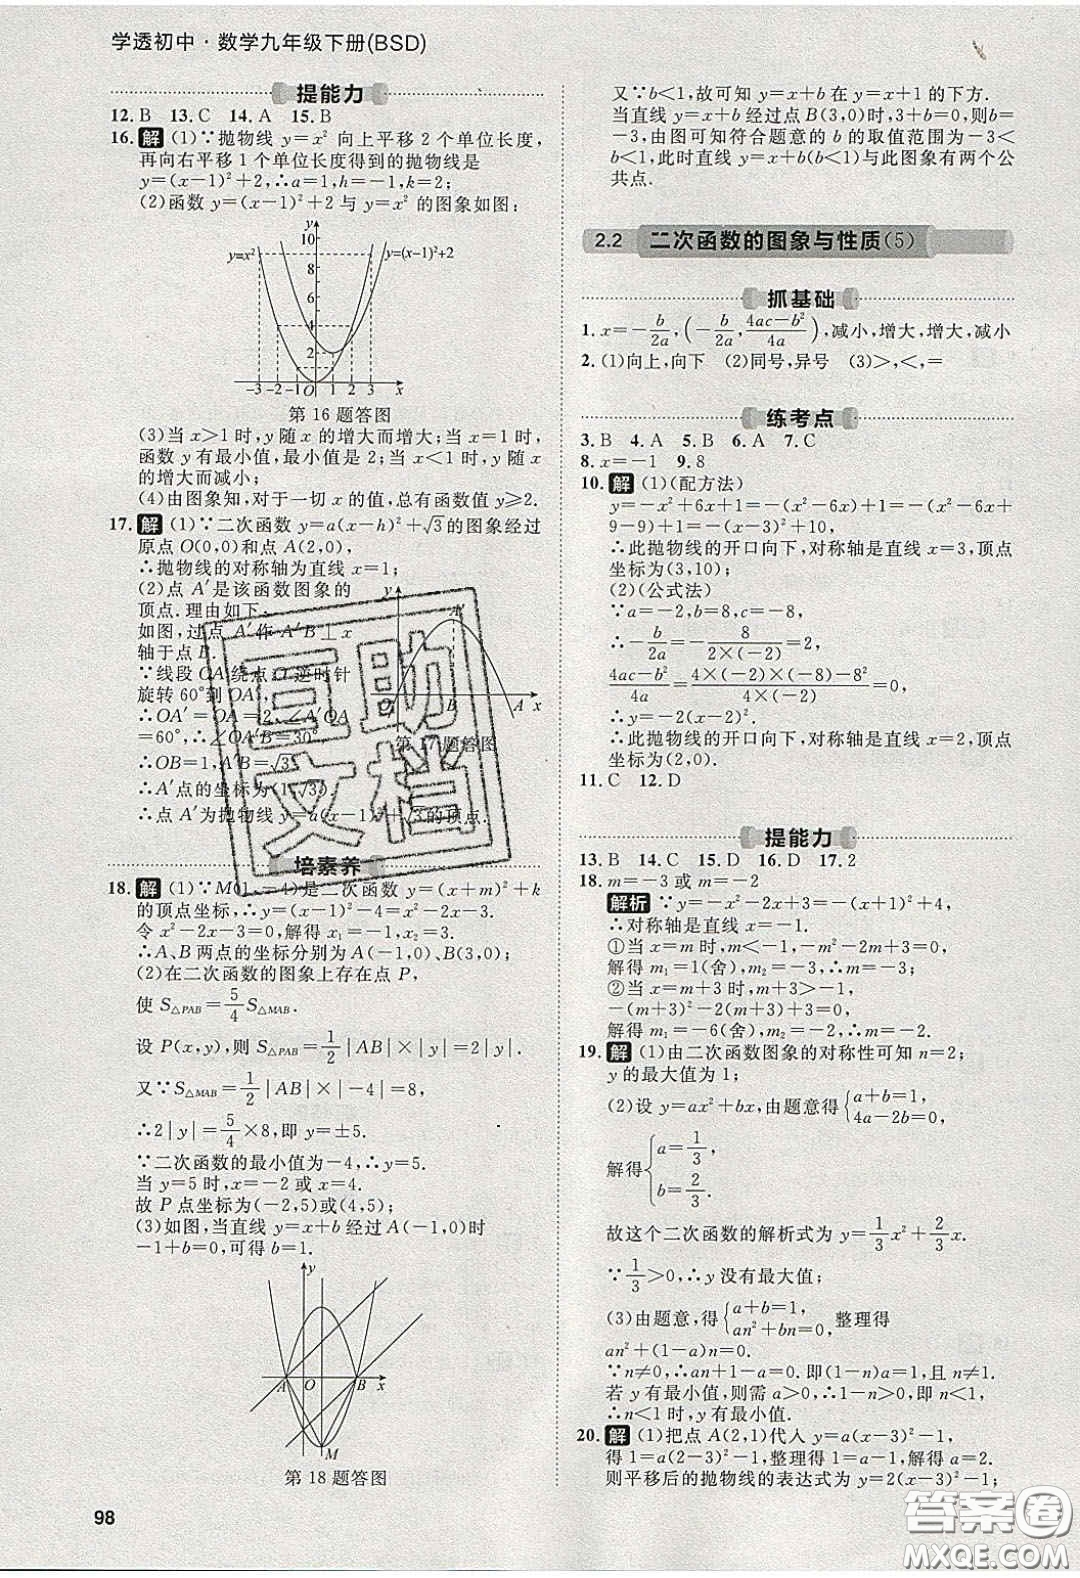 学透初中·数学九年级下册(BSD)
提能力
12. B　13. C　14. A　15. B
16. 解 (1)∵抛物线 y=x² 向上平移 2 个单位长度,
再向右平移 1 个单位长度得到的抛物线是
y=(x-1)²+2,∴a=1,h=-1,k=2;
(2)函数 y=(x-1)²+2 与 y=x² 的图象如图:
y
10
y=x²
y=(x-1)²+2
8
6
4
2
-3 -2 -1 O 1 2 3 x
第 16 题答图
(3)当 x>1 时,y 随 x 的增大而增大;当 x=1 时,
函数 y 有最小值,最小值是 2;当 x<1 时,y 随 x
的增大而减小;
(4)由图象知,对于一切 x 的值,总有函数值 y≥2.
17. 解 (1)∵二次函数 y=a(x-h)²+√3的图象经过
原点 O(0,0)和点 A(2,0),
∴抛物线的对称轴为直线 x=1;
(2)点 A′是该函数图象的
顶点.理由如下:
如图,过点 A′作 A′B⊥x
轴于点 B.
∵线段 OA 绕点 O 逆时针
旋转 60°到 OA′,
∴OA′=OA=2,∠A′OA
=60°,∴∠OA′B=30°.
∴OB=1,A′B=√3.
∴A′点的坐标为(1,√3).
∴点 A′为抛物线 y=a(x-1)²+√3的顶点.
y
A′
O B A x
第 17 题答图
互助
文档
培素养
18. 解 (1)∵M(1,-4)是二次函数 y=(x+m)²+k
的顶点坐标,∴y=(x-1)²-4=x²-2x-3.
令 x²-2x-3=0,解得 x₁=-1,x₂=3.
∴A、B 两点的坐标分别为 A(-1,0)、B(3,0);
(2)在二次函数的图象上存在点 P,
使 S△PAB=5/4 S△MAB.
设 P(x,y),则 S△PAB=1/2|AB|×|y|=2|y|.
又∵S△MAB=1/2|AB|×|-4|=8,
∴2|y|=5/4×8,即 y=±5.
∵二次函数的最小值为-4,∴y=5.
当 y=5 时,x=-2 或 x=4.
故 P 点坐标为(-2,5)或(4,5);
(3)如图,当直线 y=x+b 经过 A(-1,0)时
-1+b=0,可得 b=1.
y
A O B x
M
第 18 题答图
98
又∵b<1,故可知 y=x+b 在 y=x+1 的下方.
当直线 y=x+b 经过点 B(3,0)时,3+b=0,则b=
-3,由图可知符合题意的 b 的取值范围为-3<
b<1,此时直线 y=x+b(b<1)与此图象有两个公
共点.
2.2 二次函数的图象与性质(5)
抓基础
1. x=-b/2a,(-b/2a,4ac-b²/4a),减小,增大,增大,减小
2. (1)向上,向下　(2)同号,异号　(3)>,<,=
练考点
3. B　4. A　5. B　6. A　7. C
8. x=-1　9. 8
10. 解 (1)(配方法)
y=-x²+6x+1=-(x²-6x)+1=-(x²-6x+
9-9)+1=-(x-3)²+10,
∴此抛物线的开口向下,对称轴是直线 x=3,顶点
坐标为(3,10);
(2)(公式法)
∵a=-2,b=8,c=-8,
∴-b/2a=-8/2×(-2)=2,
4ac-b²/4a=4×(-2)×(-8)-8²/4×(-2)=0,
∴y=-2(x-2)².
∴此抛物线的开口向下,对称轴是直线 x=2,顶点
坐标为(2,0).
11. C　12. D
提能力
13. B　14. C　15. D　16. D　17. 2
18. m=-3 或 m=-2
解析 ∵y=-x²-2x+3=-(x+1)²+4,
∴对称轴是直线 x=-1.
①当 x=m 时,m<-1,-m²-2m+3=0,
解得 m₁=1(舍),m₂=-3,∴m=-3;
②当 x=m+3 时,m+3>-1,
-(m+3)²-2(m+3)+3=0,
解得 m₁=-6(舍),m₂=-2,∴m=-2.
19. 解 (1)由二次函数图象的对称性可知 n=2;
y 的最大值为 1;
(2)设 y=ax²+bx,由题意得{a+b=1, 4a-2b=0,
解得{a=1/3, b=2/3.
故这个二次函数的解析式为 y=1/3x²+2/3x.
∵1/3>0,∴y 没有最大值;
(3)由题意,得{a+b=1, an²+bn=0, 整理得
an²+(1-a)n=0.
∵n≠0,∴an+1-a=0.即(1-n)a=1,且 n≠1.
若 y 有最小值,则需 a>0,∴1-n>0,即 n<1,
∴n<1 时,y 有最小值.
20. 解 (1)把点 A(2,1)代入 y=a(x-3)²-1,
得 1=a(2-3)²-1,整理得 1=a-1,解得 a=2.
则平移后的抛物线的表达式为 y=2(x-3)²-1;
答案圈
MXQE.COM